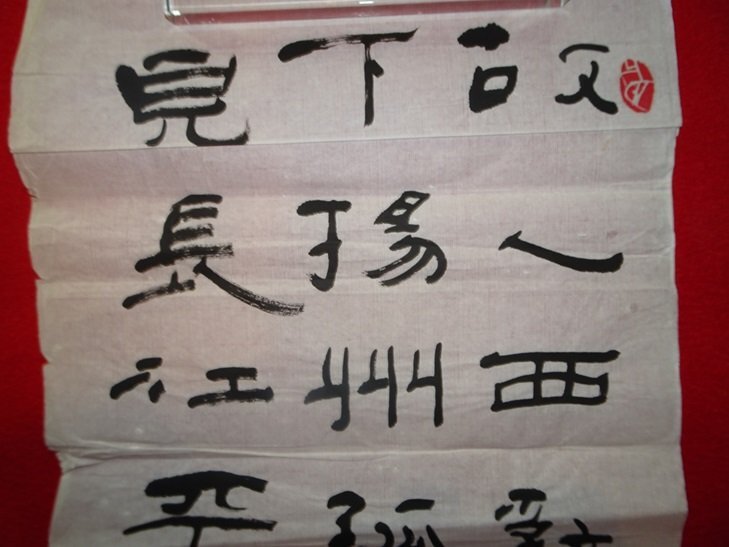 故人西辭
下揚州孤
見長江天